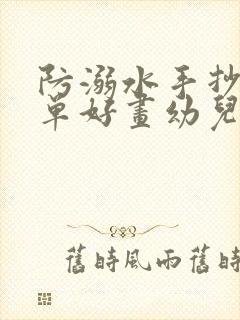 防溺水手抄
單好畫幼兒
舊時風雨舊時